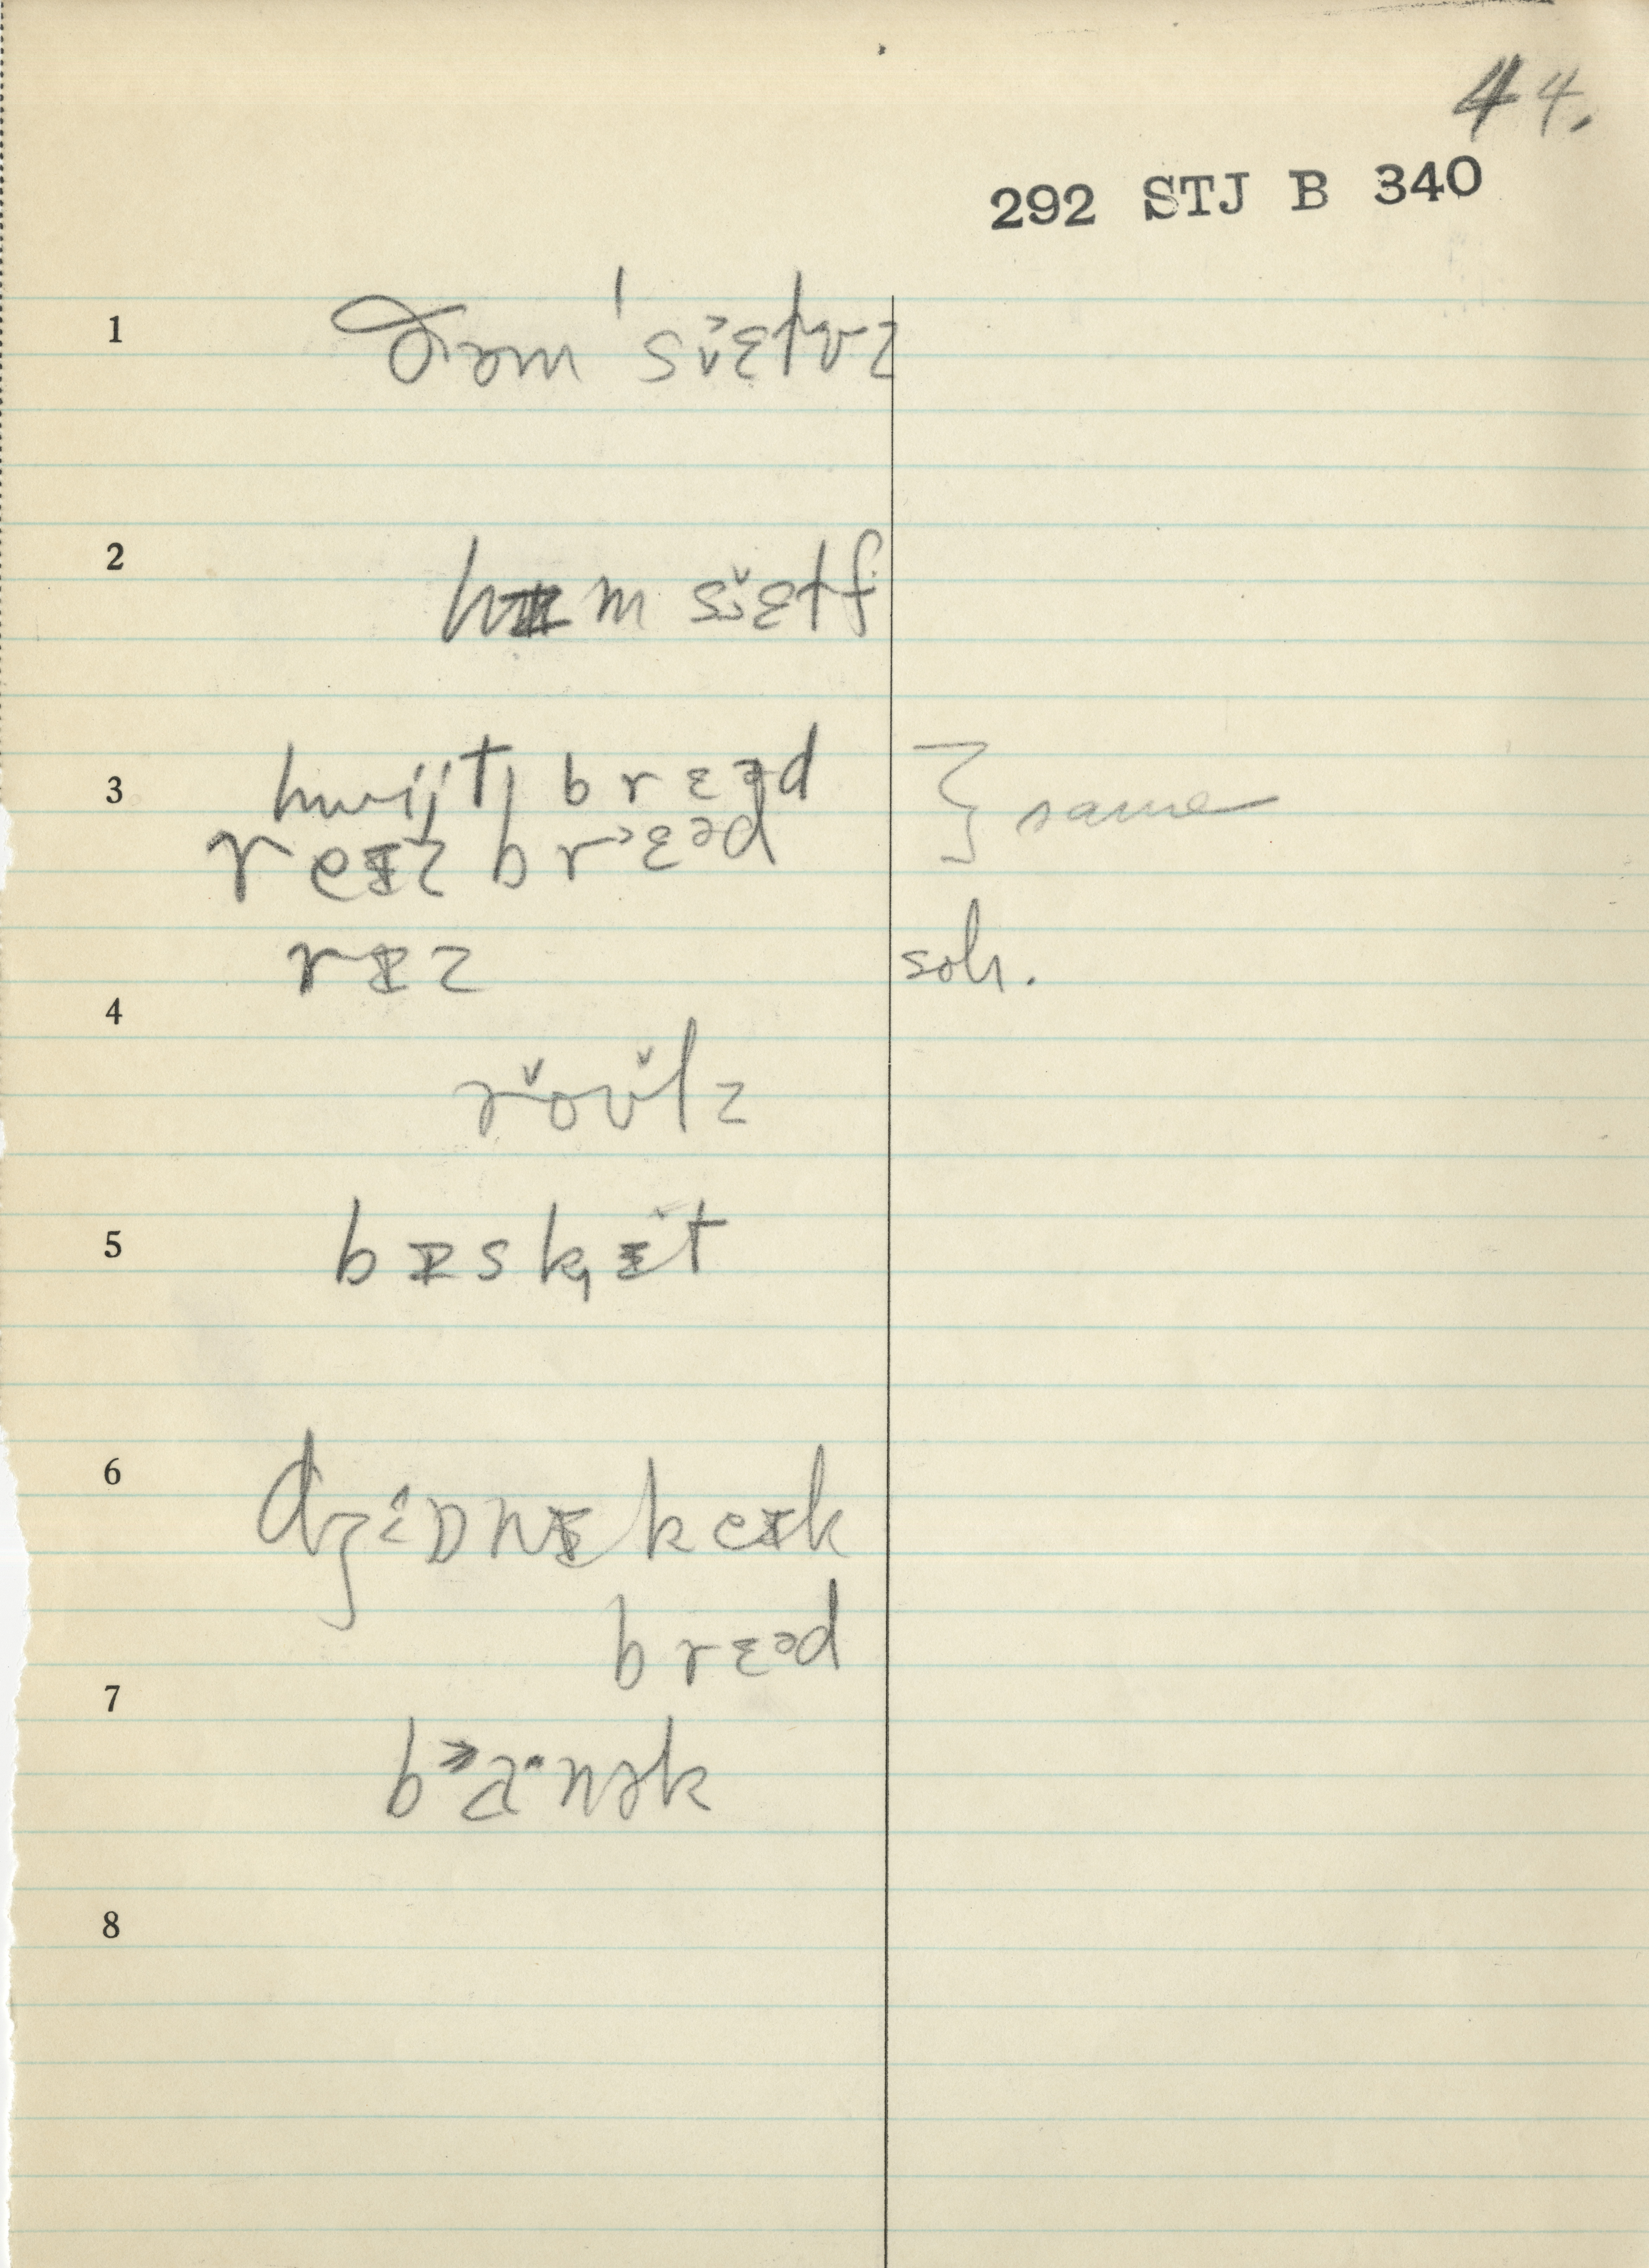 44.
292 STJ B 340
1 ðəm ˈsɪ̌˃ɛtʊz
2 hɪm sɪ̌ɛtf
3 hwɪjt| brɛəd } same
reɪz br˃ɛəd
rɪz soh.
4
rˇoʊ̌lz
5 bɪskˌɪt
6 dʒɒnɪ keɪk
brɛəd
7
b˃a·nək
8